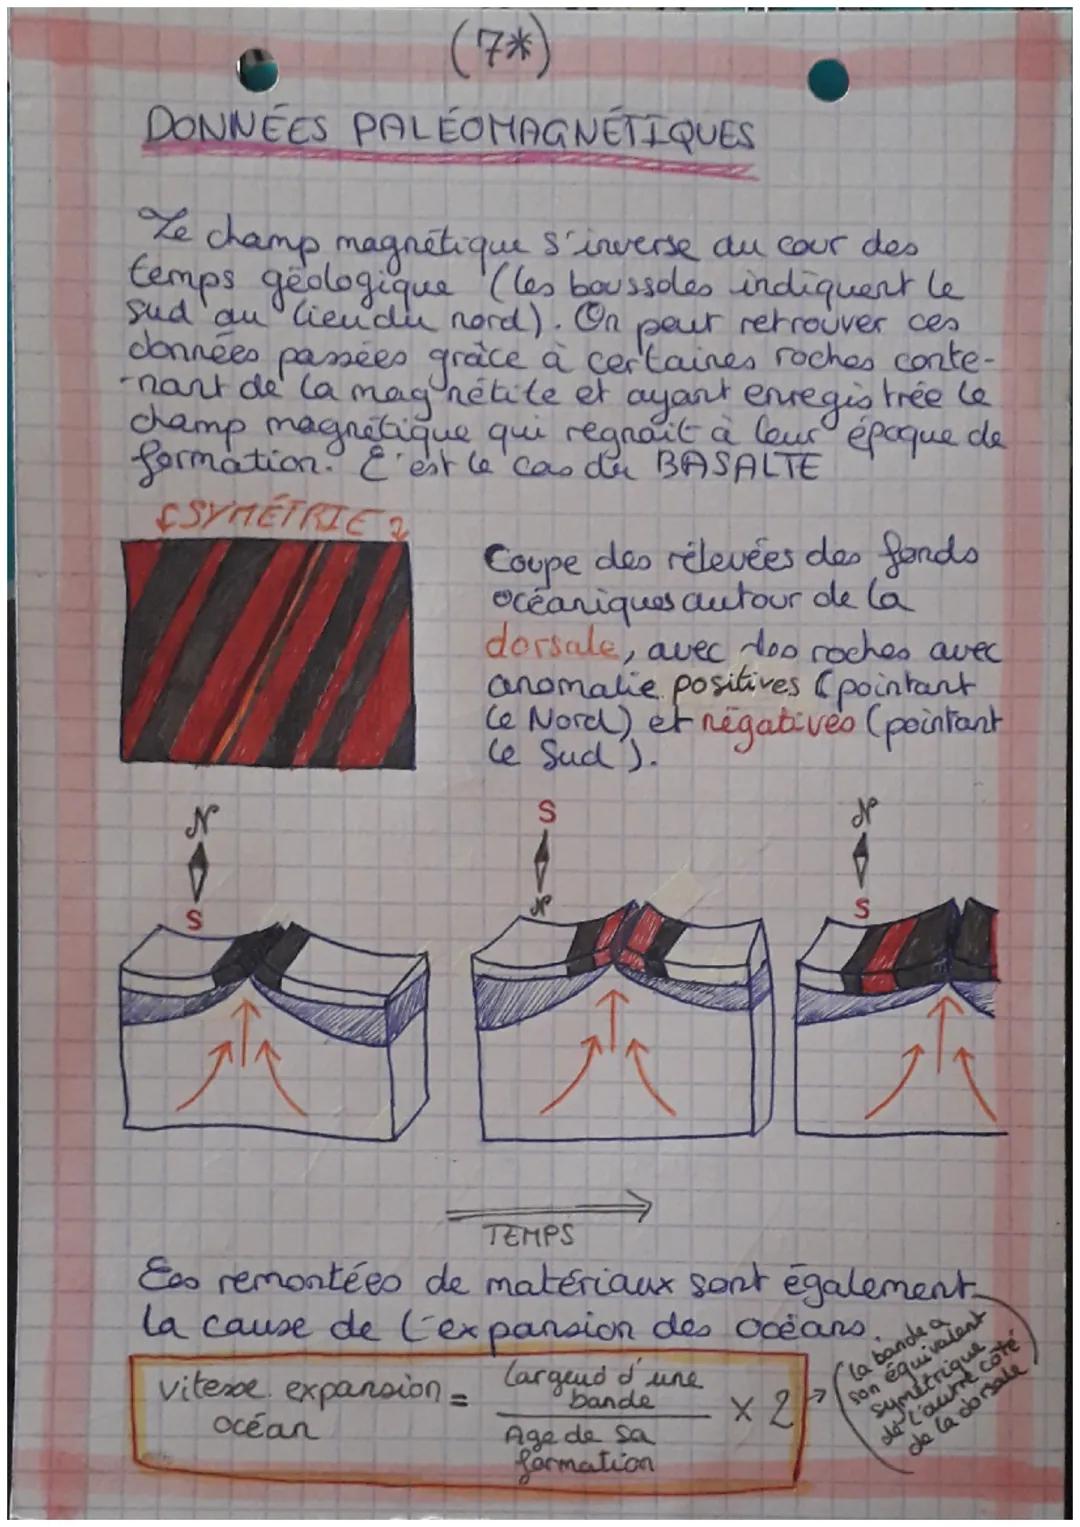 (7*)
DONNÉES PALÉOMAGNÉTIQUES
Le champ magnétique s'inverse au cour des
temps géologique (les boussoles indiquent le
sud au lieu du nord). On peut retrouver ces
données passées grâce à certaines roches conte-
-nant de la magnétite et ayant enregistrée le
champ magnétique qui régnait à leur époque de
formation. C'est le cas du BASALTE
SYMÉTRIE
Coupe des rélevées des fonds
océaniques autour de la
dorsale, avec des roches avec
anomalie positives (pointant
le Nord) et négatives (pointant
le Sud).
N
S
S
N
N
S
TEMPS
Ces remontées de matériaux sont également
la cause de l'expansion des océans.
vitesse expansion océan = largeud d'une bande / Age de sa formation × 2
(la bande a
son équivalent
symétrique
de l'autre côté
de la dorsale)